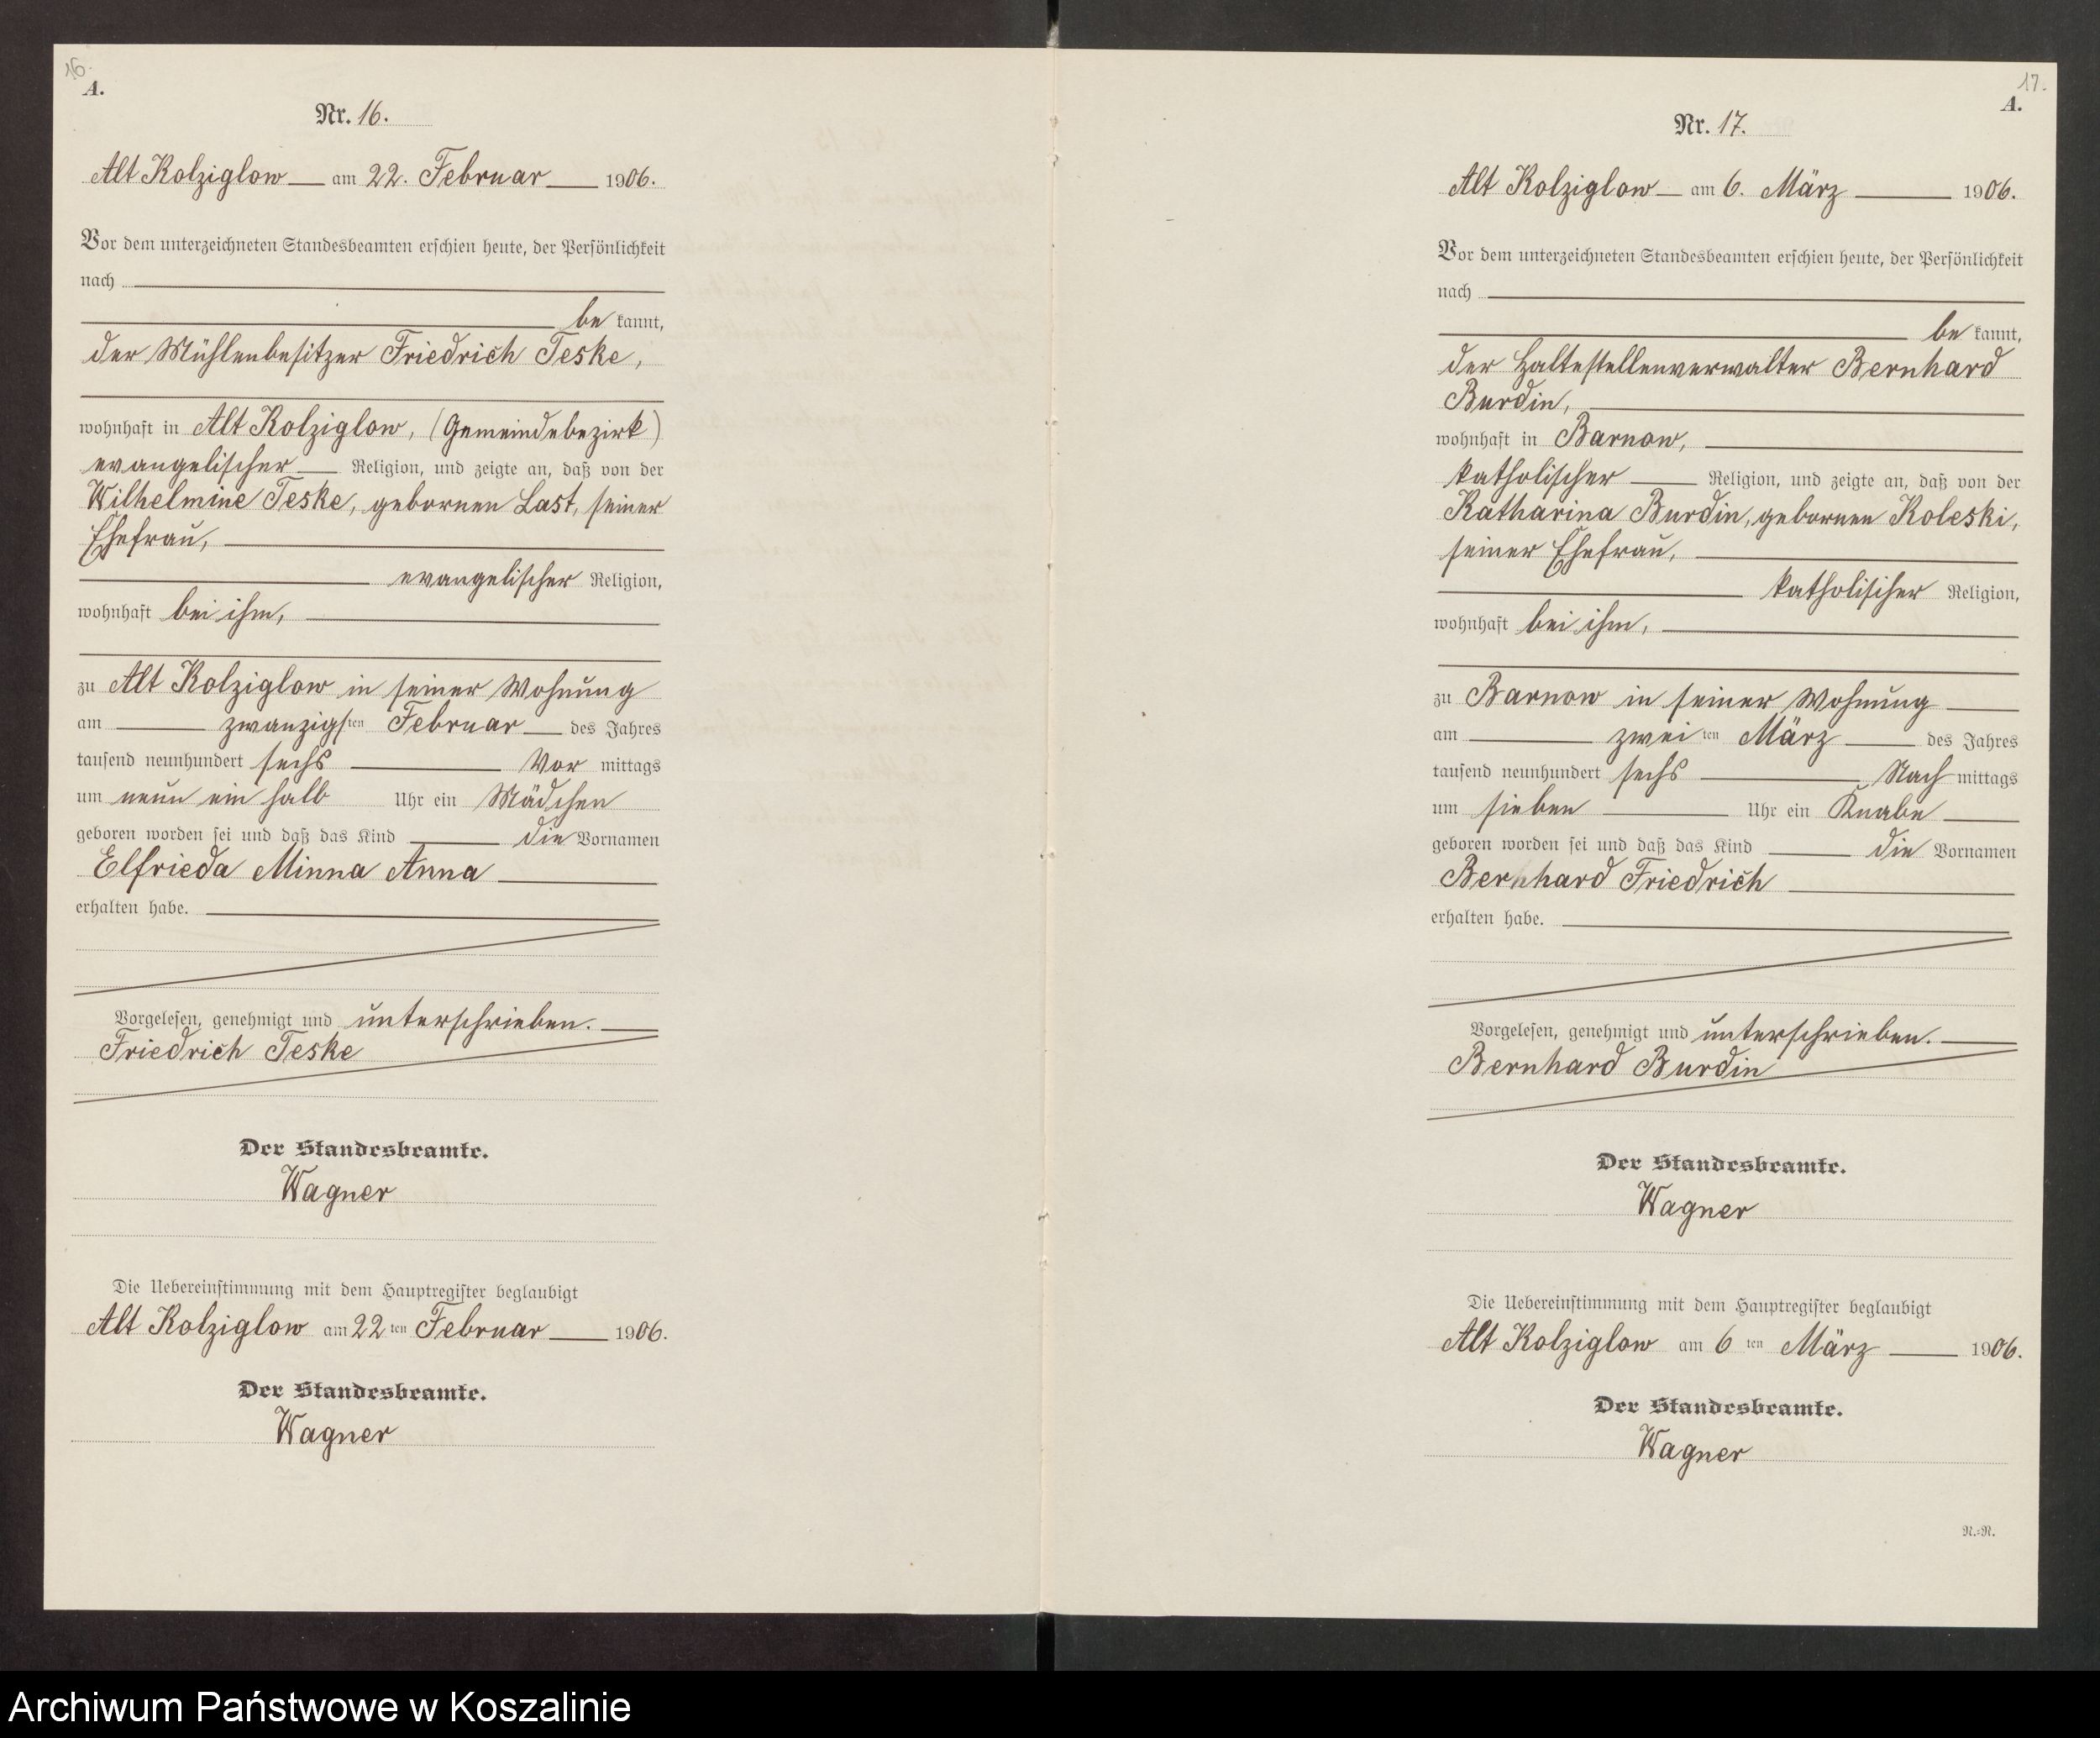 16.
A.
Nr. 16.
Alt Kolziglow am 22. Februar 1906.
Vor dem unterzeichneten Standesbeamten erschien heute, der Persönlichkeit
nach
be kannt,
der Mühlenbesitzer Friedrich Teske,
wohnhaft in Alt Kolziglow, (Gemeindebezirk)
evangelischer Religion, und zeigte an, daß von der
Wilhelmine Teske, gebornen Last, seiner
Ehefrau,
evangelischer Religion,
wohnhaft bei ihm,
zu Alt Kolziglow in seiner Wohnung
am zwanzigsten Februar des Jahres
tausend neunhundert sechs Vor mittags
um neun ein halb Uhr ein Mädchen
geboren worden sei und daß das Kind die Vornamen
Elfrieda Minna Anna
erhalten habe.
Vorgelesen, genehmigt und unterschrieben.
Friedrich Teske
Der Standesbeamte.
Wagner
Die Uebereinstimmung mit dem Hauptregister beglaubigt
Alt Kolziglow am 22 ten Februar 1906.
Der Standesbeamte.
Wagner
17.
A.
Nr. 17.
Alt Kolziglow am 6. März 1906.
Vor dem unterzeichneten Standesbeamten erschien heute, der Persönlichkeit
nach
be kannt,
der Haltestellenverwalter Bernhard
Burdin,
wohnhaft in Barnow,
katholischer Religion, und zeigte an, daß von der
Katharina Burdin, gebornen Koleski,
seiner Ehefrau,
katholischer Religion,
wohnhaft bei ihm,
zu Barnow in seiner Wohnung
am zwei ten März des Jahres
tausend neunhundert sechs Nach mittags
um sieben Uhr ein Knabe
geboren worden sei und daß das Kind die Vornamen
Bernhard Friedrich
erhalten habe.
Vorgelesen, genehmigt und unterschrieben.
Bernhard Burdin
Der Standesbeamte.
Wagner
Die Uebereinstimmung mit dem Hauptregister beglaubigt
Alt Kolziglow am 6 ten März 1906.
Der Standesbeamte.
Wagner
N.=N.
Archiwum Państwowe w Koszalinie